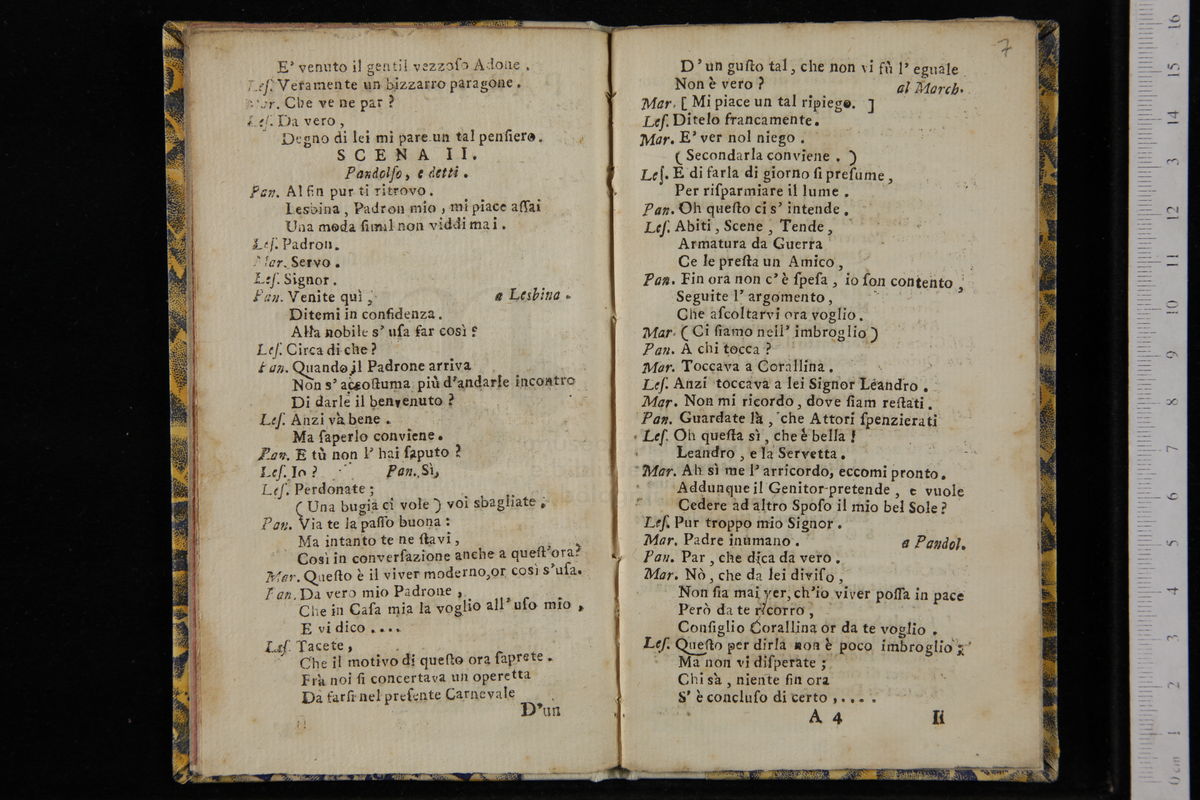 E' venuto il gentil vezzoſo Adone.
Leſ. Veramente un bizzarro paragone.
Mar. Che ve ne par?
Leſ. Da vero,
Degno di lei mi pare un tal penſiero.
SCENA II.
Pandolfo, e detti.
Pan. Al fin pur ti ritrovo.
Lesbina, Padron mio, mi piace aſſai
Una moda ſimil non viddi mai.
Leſ. Padron.
Mar. Servo.
Leſ. Signor.
Pan. Venite quì, a Lesbina.
Ditemi in confidenza.
Alla nobile s' uſa far così?
Leſ. Circa di che?
Pan. Quando il Padrone arriva
Non s' accoſtuma più d'andarle incontro
Di darle il benvenuto?
Leſ. Anzi và bene.
Ma ſaperlo conviene.
Pan. E tù non l' hai ſaputo?
Leſ. Io? Pan. Sì,
Leſ. Perdonate;
(Una bugia ci vole) voi sbagliate.
Pan. Via te la paſſo buona:
Ma intanto te ne ſtavi,
Così in converſazione anche a queſt'ora?
Mar. Queſto è il viver moderno, or così s'uſa.
Pan. Da vero mio Padrone,
Che in Caſa mia la voglio all' uſo mio,
E vi dico....
Leſ. Tacete,
Che il motivo di queſto ora ſaprete.
Frà noi ſi concertava un operetta
Da farſi nel preſente Carnevale
D'un
7
D' un guſto tal, che non vi fù l' eguale
Non è vero? al March.
Mar. [Mi piace un tal ripiego.]
Leſ. Ditelo francamente.
Mar. E' ver nol niego.
(Secondarla conviene.)
Leſ. E di farla di giorno ſi preſume,
Per riſparmiare il lume.
Pan. Oh queſto ci s' intende.
Leſ. Abiti, Scene, Tende,
Armatura da Guerra
Ce le preſta un Amico,
Pan. Fin ora non c' è ſpeſa, io ſon contento,
Seguite l' argomento,
Che aſcoltarvi ora voglio.
Mar. (Ci ſiamo nell' imbroglio)
Pan. A chi tocca?
Mar. Toccava a Corallina.
Leſ. Anzi toccava a lei Signor Leandro.
Mar. Non mi ricordo, dove ſiam reſtati.
Pan. Guardate là, che Attori ſpenzierati
Leſ. Oh queſta sì, che è bella!
Leandro, e la Servetta.
Mar. Ah sì me l' arricordo, eccomi pronto.
Addunque il Genitor pretende, e vuole
Cedere ad altro Spoſo il mio bel Sole?
Leſ. Pur troppo mio Signor.
Mar. Padre inumano. a Pandol.
Pan. Par, che dica da vero.
Mar. Nò, che da lei diviſo,
Non ſia mai ver, ch'io viver poſſa in pace
Però da te ricorro,
Conſiglio Corallina or da te voglio.
Leſ. Queſto per dirla non è poco imbroglio;
Ma non vi diſperate;
Chi sà, niente fin ora
S' è concluſo di certo,....
A 4 Il